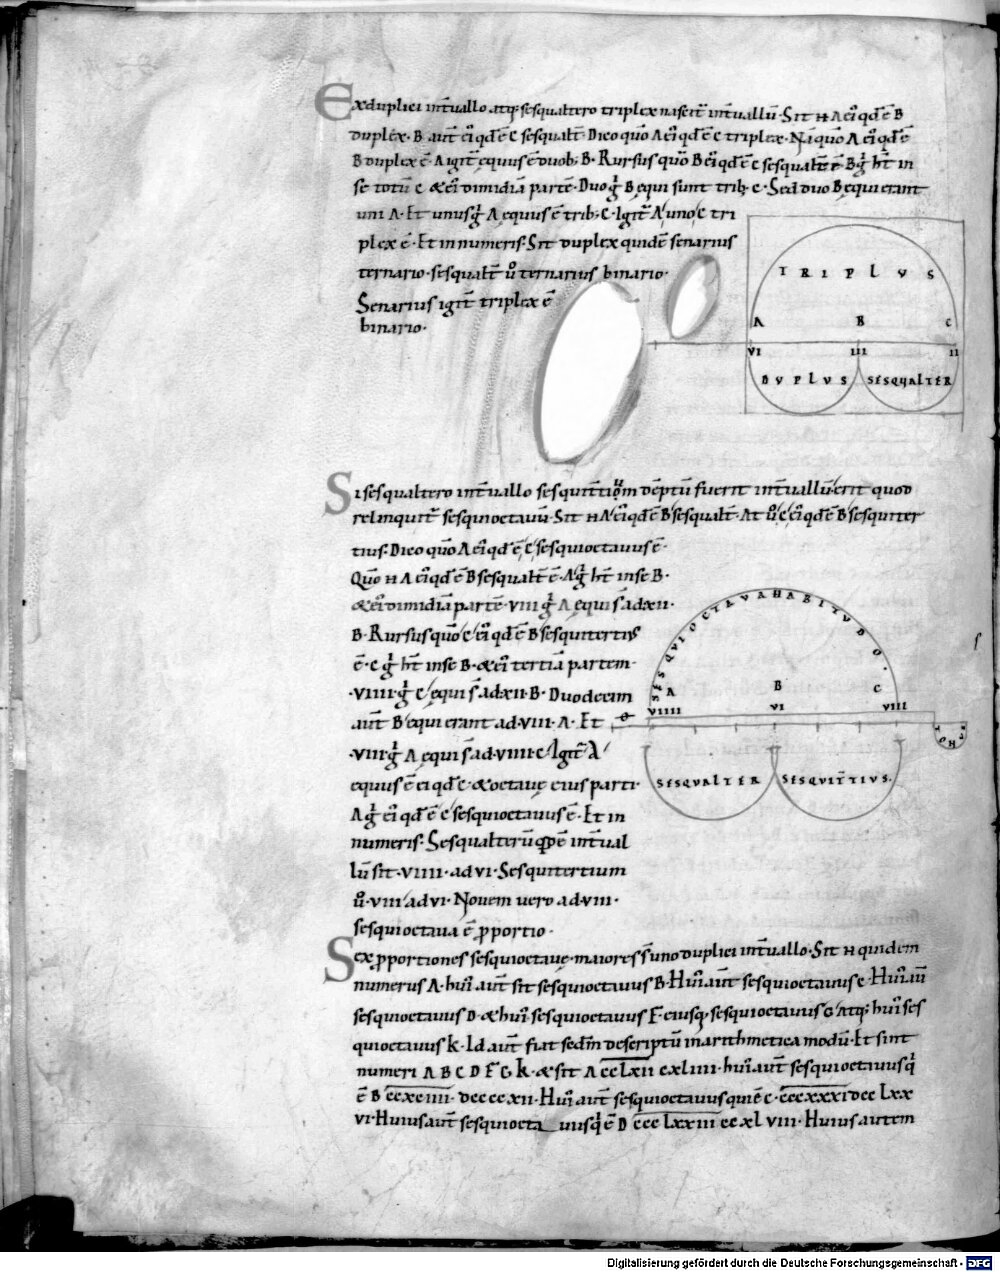 Ex duplici int̄uallo atq; sesqualtero triplex nascit̄ int̄uallū. Sit ɴ A ei̊ qd ē B
duplex. B aut̄ ei̊ qd ē C sesqualt̄. Dico quō A ei̊ qd ē C triplex. Nā quō A ei̊ qd ē
B duplex ē. A igit̄ equus ē duob; B. Rursus quō B ei̊ qd ē C sesqualt̄ ē B g̊ ht̄ in
se totū C & ei̊ dimidiā partē. Duo g̊ B equi sunt trib; C. Sed duo B equi erant
uni A. Et unus g̊ A equus ē trib; C. Igit̄ A uno C tri
plex ē. Et in numeris. Sit duplex quidē senarius
ternario. sesqualt̄ ů ternarius binario.
Senarius igit̄ triplex ē
binario.
TRIPLVS
A B C
VI III II
DVPLVS SESQVALTER
Si sesqualtero int̄uallo sesquit̄tiom dēptū fuerit int̄uallū erit quod
relinquit̄ sesquioctauū. Sit ɴ A ei̊ qd ē B sesqualt̄. At ů C ei̊ qd ē B sesquiter
tius. Dico quō A ei̊ qd ē C sesquioctauus ē.
Quō ɴ A ei̊ qd ē B sesqualt̄ ē. A g̊ ht̄ in se B.
& ei̊ dimidiā partē. VIII g̊ A equi s̄ ad XII.
B. Rursus quō C ei̊ qd ē B sesquitertius
ē. C g̊ ht̄ in se B. & ei̊ tertiā partem.
VIIII. g̊ C equi s̄ ad XII. B. Duodecim
aut̄ B equi erant ad VIII. A. Et
VIII g̊ A equi s̄ ad VIIII C. Igit̄ A
equus ē ei qd C. & octauę eius parti.
A g̊ ei̊ qd ē C sesquioctauus ē. Et in
numeris. Sesqualterū qpē int̄ual
lū sit. VIIII. ad VI. Sesquitertium
ů. VIII ad VI. Nouem uero ad VIII.
sesquioctaua ē p̄portio.
SESQVIOCTAVA HABITVDO.
A B C
VIIII VI VIII
SESQVALTER SESQVIT̄TIVS.
Sex p̄portiones sesquioctauę. maiores s̄ uno duplici int̄uallo. Sit ɴ quidem
numerus A. hui̊ aut̄ sit sesquioctauus B. Hui̊ aut̄ sesquioctauus C. Hui̊ aū
sesquioctauus D. & hui̊ sesquioctauus F. eiusq; sesquioctauus G. atq; hui̊ ses
quioctauus K. Id aut̄ fiat sedm̄ descriptū in arithmetica modū. Et sint
numeri A B C D F G K. & sit A cclxii cxliiii. hui̊ aut̄ sesquioctauus q̊
ē B ccxciiii. dccccxii. Hui̊ aut̄ sesquioctauus qui ē C. cccxxxi dcc Lxx
vi. Huius aut̄ sesquiocta uus q̊ ē D ccc Lxxiii cc xL viii. Huius autem
Digitalisierung gefördert durch die Deutsche Forschungsgemeinschaft - DFG